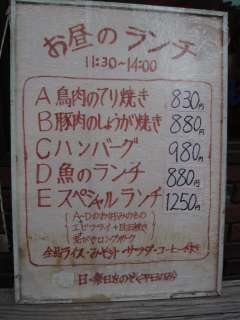 お昼のランチ
11:30~14:00
A 鳥肉のてり焼き 830円
B 豚肉のしょうが焼き 880円
C ハンバーグ 980円
D 魚のランチ 880円
E スペシャルランチ 1250円
A~Dのお好みのもの
エビフライ+
全品ライス・みそ汁・サラダ・コーヒー付き
日・祭日をのぞく平日のみ